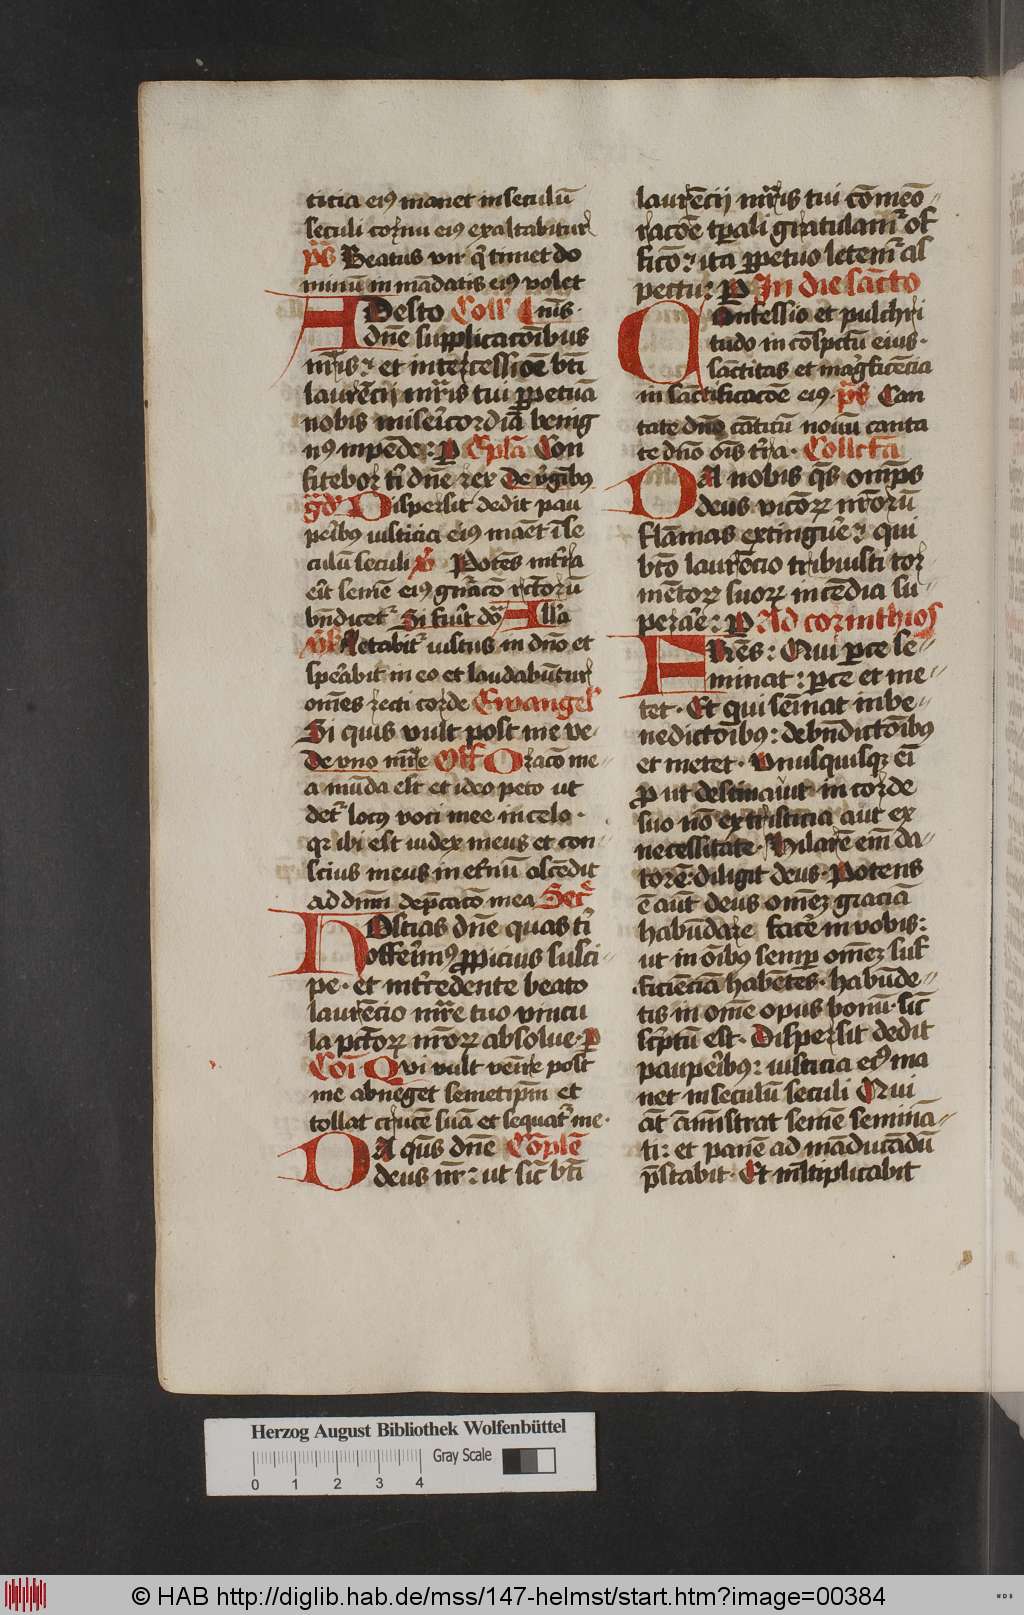 ticia eiꝰ manet in seculū
seculi cornu eiꝰ exaltabitur
p̄s Beatus vir q̇ timet do
minū in mādatis eiꝰ volet
ADesto Coll' Qūs
dn̄e supplicacōibus
nr̄is · et intercessiōe bt̄i
laurēcii mr̄is tui ꝑpetuā
nobis misericordiā benig
nꝰ impēde : P Ep̄la Con
fitebor t' dn̄e rex De v̓gībꝰ
gd' Dispersit dedit pau
peribꝰ iusticia eiꝰ maēt ī se
culū seculi v̓ Potēs in t̓ra
eīt semē eiꝰ gn̄acō rectorū
bn̄dicet' Si fuīt do' All'a
v̓s Letabit' iustus in dn̄o et
sperabit in eo et laudabūtur
om̄es recti corde Ewangel'
Si quis vult post me ve-
De vno mr̄e Off Oracō me-
a mūda est et ideo peto ut
det' locꝰ voci mee in celo ·
qr ibi est iudex meus et con-
scius meus in excelsis ascēdit
ad dn̄m dep̄catō mea Secr̄
HOstias dn̄e quas t'
offerimꝰ ꝓpicius susci-
pe · et int̓cedente beato
laurēcio mr̄e tuo vincu
la pctorꝝ nr̄orꝝ absolue · P
Cōi Qvi vult venire post
me abneget semetip̄m et
tollat crucē suā et sequat' me ·
DA qūs dn̄e Cōplē
deus nr̄ : ut sic̄ bt̄i
laurēcii mr̄is tui cōmeō-
racōe tp̄ali gratulam' of
ficō · ita ꝑpetuo letem' as
pectu : P In die sācto
COnfessio et pulchri
tudo in cōspctu eius ·
sāctitas et mag̓ficēcia
in sāctificacōe eiꝰ · p̄s Can
tate dn̄o cāticū nouū canta
te dn̄o ōis t̓ra · Collcta
DA nobis qs om̄ps
deus vicorꝝ nr̄orū
flāmas extinguē · qui
bt̄o laurēcio tribuisti tor
mētorꝝ suorꝝ incēdia su-
perare : P Ad corinthios
FRēs : Qui ꝑce se-
minat : ꝑce et me-
tet · Et qui semīat in be-
nedictōibꝰ : de bn̄dictōibꝰ
et metet · Vnusquisqꝫ eī
ꝓut destinauit in corde
suo nō ex tristicia aut ex
necessitate · Hilarē em̄ da-
torē · diligit deus · Potens
ē aut deus om̄eꝫ graciā
habūdare facere in vobis :
ut in oībꝰ semp om̄eꝫ suf
ficiēciā habētes · habūde-
tis in om̄e opus bonū · sic̄
scptū est · Dispersit dedit
pauperibꝰ : iusticia eiꝰ ma
net in seculū seculi Qui
aūt āmistrat semē seminā-
ti : et panē ad māducādū
p̄stabit · Et mltiplicabit
Herzog August Bibliothek Wolfenbüttel
Gray Scale
0 1 2 3 4
© HAB http://diglib.hab.de/mss/147-helmst/start.htm?image=00384